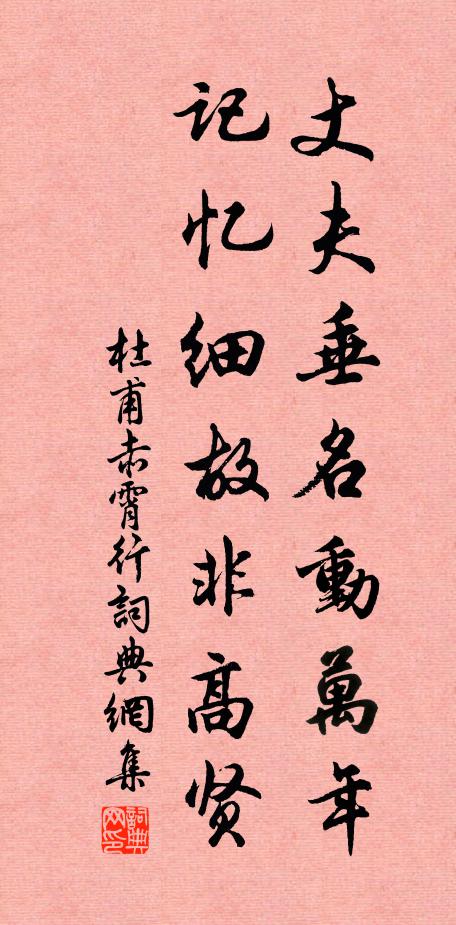 丈夫垂名動萬年
记忆细故非高贤
杜甫赤霄行詞典網集
詞典网印